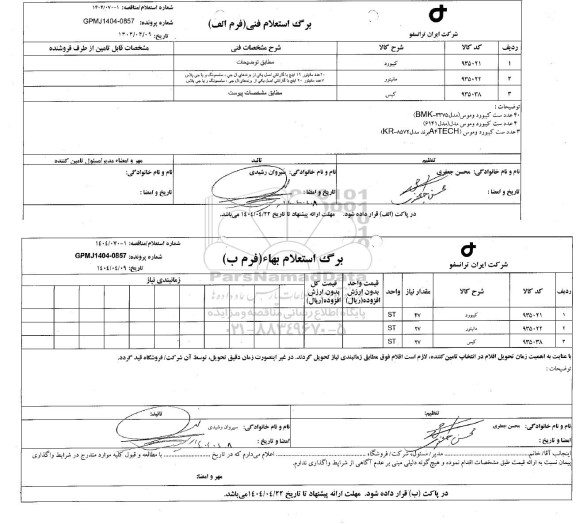 شماره استعلام/مناقصه: ۱-۱۴۰۴/۰۷۰
برگ استعلام فنی(فرم الف)
شماره پرونده: GPMJ1404-0857
تاریخ: ۱۴۰۴/۰۴/۰۹
شرکت ایران ترانسفو
ردیف کد کالا شرح کالا شرح مشخصات فنی مشخصات قابل تامین از طرف فروشنده
۱ ۹۳۵۰۲۱ کیبورد مطابق توضیحات
۲ ۹۳۵۰۲۲ مانیتور
۳ ۹۳۵۰۳۸ کیس مطابق مشخصات پیوست
توضیحات :
۴۰ عدد ست کیبورد وموس(مدل BMK-۲۳۷۵)
۴ عدد ست کیبورد وموس مدل(مدل ۶۱۴۱)
۳ عدد ست کیبورد وموس (A۴TECH برند مدل KR-۸۵۷۲)
تنظیم تائید مهر و امضاء مدیر/مسئول تامین کننده
نام و نام خانوادگی: محسن جعفری نام و نام خانوادگی: سیروان رشیدی نام و نام خانوادگی:
تاریخ و امضا : تاریخ و امضا : تاریخ و امضا :
در پاکت (الف) قرار داده شود. مهلت ارائه پیشنهاد تا تاریخ ۱۴۰۴/۰۴/۲۲ می‌باشد.
شماره استعلام/مناقصه: ۱-۱۴۰۴/۰۷۰
برگ استعلام بهاء(فرم ب)
شماره پرونده: GPMJ1404-0857
تاریخ: ۱۴۰۴/۰۴/۰۹
شرکت ایران ترانسفو
ParsNamadData
پایگاه اطلاع رسانی مناقصه و مزایده
۰۲۱-۸۸۳۴۹۶۷۰-۵
ردیف کد کالا شرح کالا مقدار نیاز واحد قیمت واحد بدون ارزش افزوده(ریال) قیمت کل بدون ارزش افزوده(ریال) زمانبندی نیاز
۱ ۹۳۵۰۲۱ کیبورد ۴۷ ST
۲ ۹۳۵۰۲۲ مانیتور ۲۷ ST
۳ ۹۳۵۰۳۸ کیس ۲۷ ST
با عنایت به اهمیت زمان تحویل اقلام در انتخاب تامین‌کننده، لازم است اقلام فوق مطابق زمانبندی نیاز تحویل گردند. در غیر اینصورت زمان دقیق تحویل، توسط آن شرکت/ فروشگاه قید گردد.
توضیحات:
تنظیم: تائید:
نام و نام خانوادگی: محسن جعفری نام و نام خانوادگی: سیروان رشیدی
تاریخ و امضا : تاریخ و امضا :
اینجانب آقا/ خانم........ مدیر/ مسئول، شرکت/ فروشگاه ........ اعلام می‌دارم که در تاریخ ........ با مطالعه و قبول کلیه موارد مندرج در شرایط واگذاری
پیمان نسبت به ارائه قیمت طبق مشخصات اقدام نموده و هیچ گونه دلیلی مبنی بر عدم آگاهی از شرایط واگذاری ندارم.
مهر و امضاء:
در پاکت (ب) قرار داده شود. مهلت ارائه پیشنهاد تا تاریخ ۱۴۰۴/۰۴/۲۲ می‌باشد.